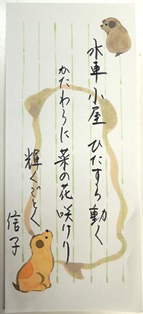 水車小屋 ひたすら動く
かたわらに 菜の花咲けり
輝くごとく
信子